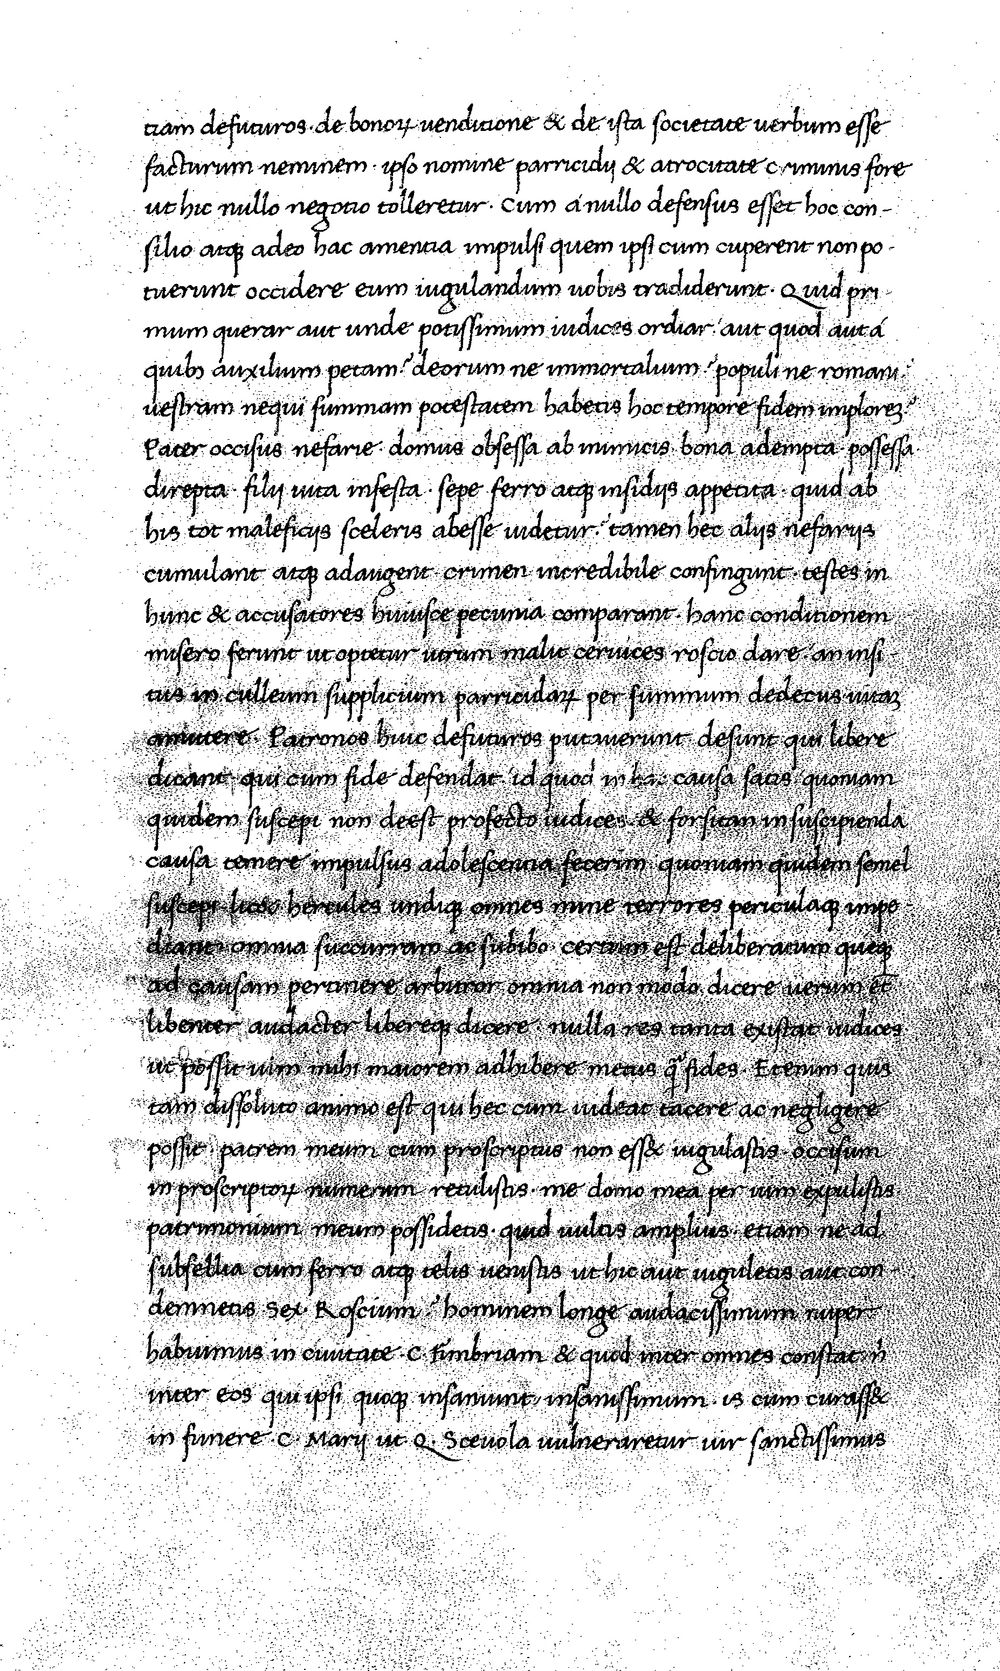 tiam defuturos. de bonoꝝ uenditione & de ista societate uerbum esse
facturum neminem. ipso nomine parricidij & atrocitate criminis fore
ut hic nullo negotio tolleretur. Cum á nullo defensus esset hoc con-
silio atqꝫ adeo hac amentia impulsi quem ipsi cum cuperent non po-
tuerunt occidere eum iugulandum uobis tradiderunt. Quid pri
mum querar aut unde potissimum iudices ordiar. aut quod aut á
quibꝫ auxilium petam? deorum ne immortalium? populi ne romani?
uestram nequi summam potestatem habetis hoc tempore fidem implorẽ?
Pater occisus nefarie. domus obsessa ab inimicis. bona adempta. possessa
direpta. filij uita infesta. sepe ferro atqꝫ insidijs appetita. quid ab
his tot maleficijs sceleris abesse uidetur? tamen hec alijs nefarijs
cumulant atqꝫ adaugent. crimen incredibile confingunt. testes in
hunc & accusatores huiusce pecunia comparant. hanc conditionem
misero ferunt ut optetur utrum malit ceruices roscio dare. an insi-
tus in culleum supplicium parricidaꝝ per summum dedecus uitaꝫ
amittere. Patronos huic defuturos putauerunt. desunt qui libere
dicant. qui cum fide defendat. id quod in hac causa satis quoniam
quidem suscepi non deest profecto iudices. & forsitan in suscipienda
causa temere impulsus adolescentia fecerim. quoniam quidem semel
suscepi licet hercules undiqꝫ omnes mine terrores periculaqꝫ impe-
diant. omnia succurram ac subibo. certum est deliberatum queqꝫ
ad causam pertinere arbitror omnia non modo dicere uerum et̃
libenter audacter libereqꝫ dicere. nulla res tanta existat iudices
ut possit uim mihi maiorem adhibere metus q̃ fides. Etenim quis
tam dissoluto animo est qui hec cum uideat tacere ac negligere
possit. patrem meum cum proscriptus non ess& iugulastis. occisum
in proscriptoꝝ numerum retulistis. me domo mea per uim expulistis
patrimonium meum possidetis. quid uultis amplius. etiam ne ad
subsellia cum ferro atqꝫ telis uenistis ut hic aut iuguletis aut con-
demnetis Sex. Roscium? hominem longe audacissimum nuper
habuimus in ciuitate C. Fimbriam & quod inter omnes constat. n̄
inter eos qui ipsi quoqꝫ insaniunt, insanissimum. is cum curass&
in funere C. Marij ut Q. Sceuola uulneraretur uir sanctissimus